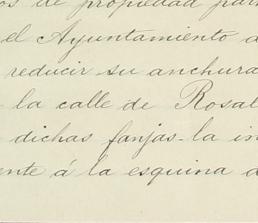 os de propiedad par
el Ayuntamiento d
reducir su anchura
la calle de Rosal
dichas fanjas la in
ente á la esquina d